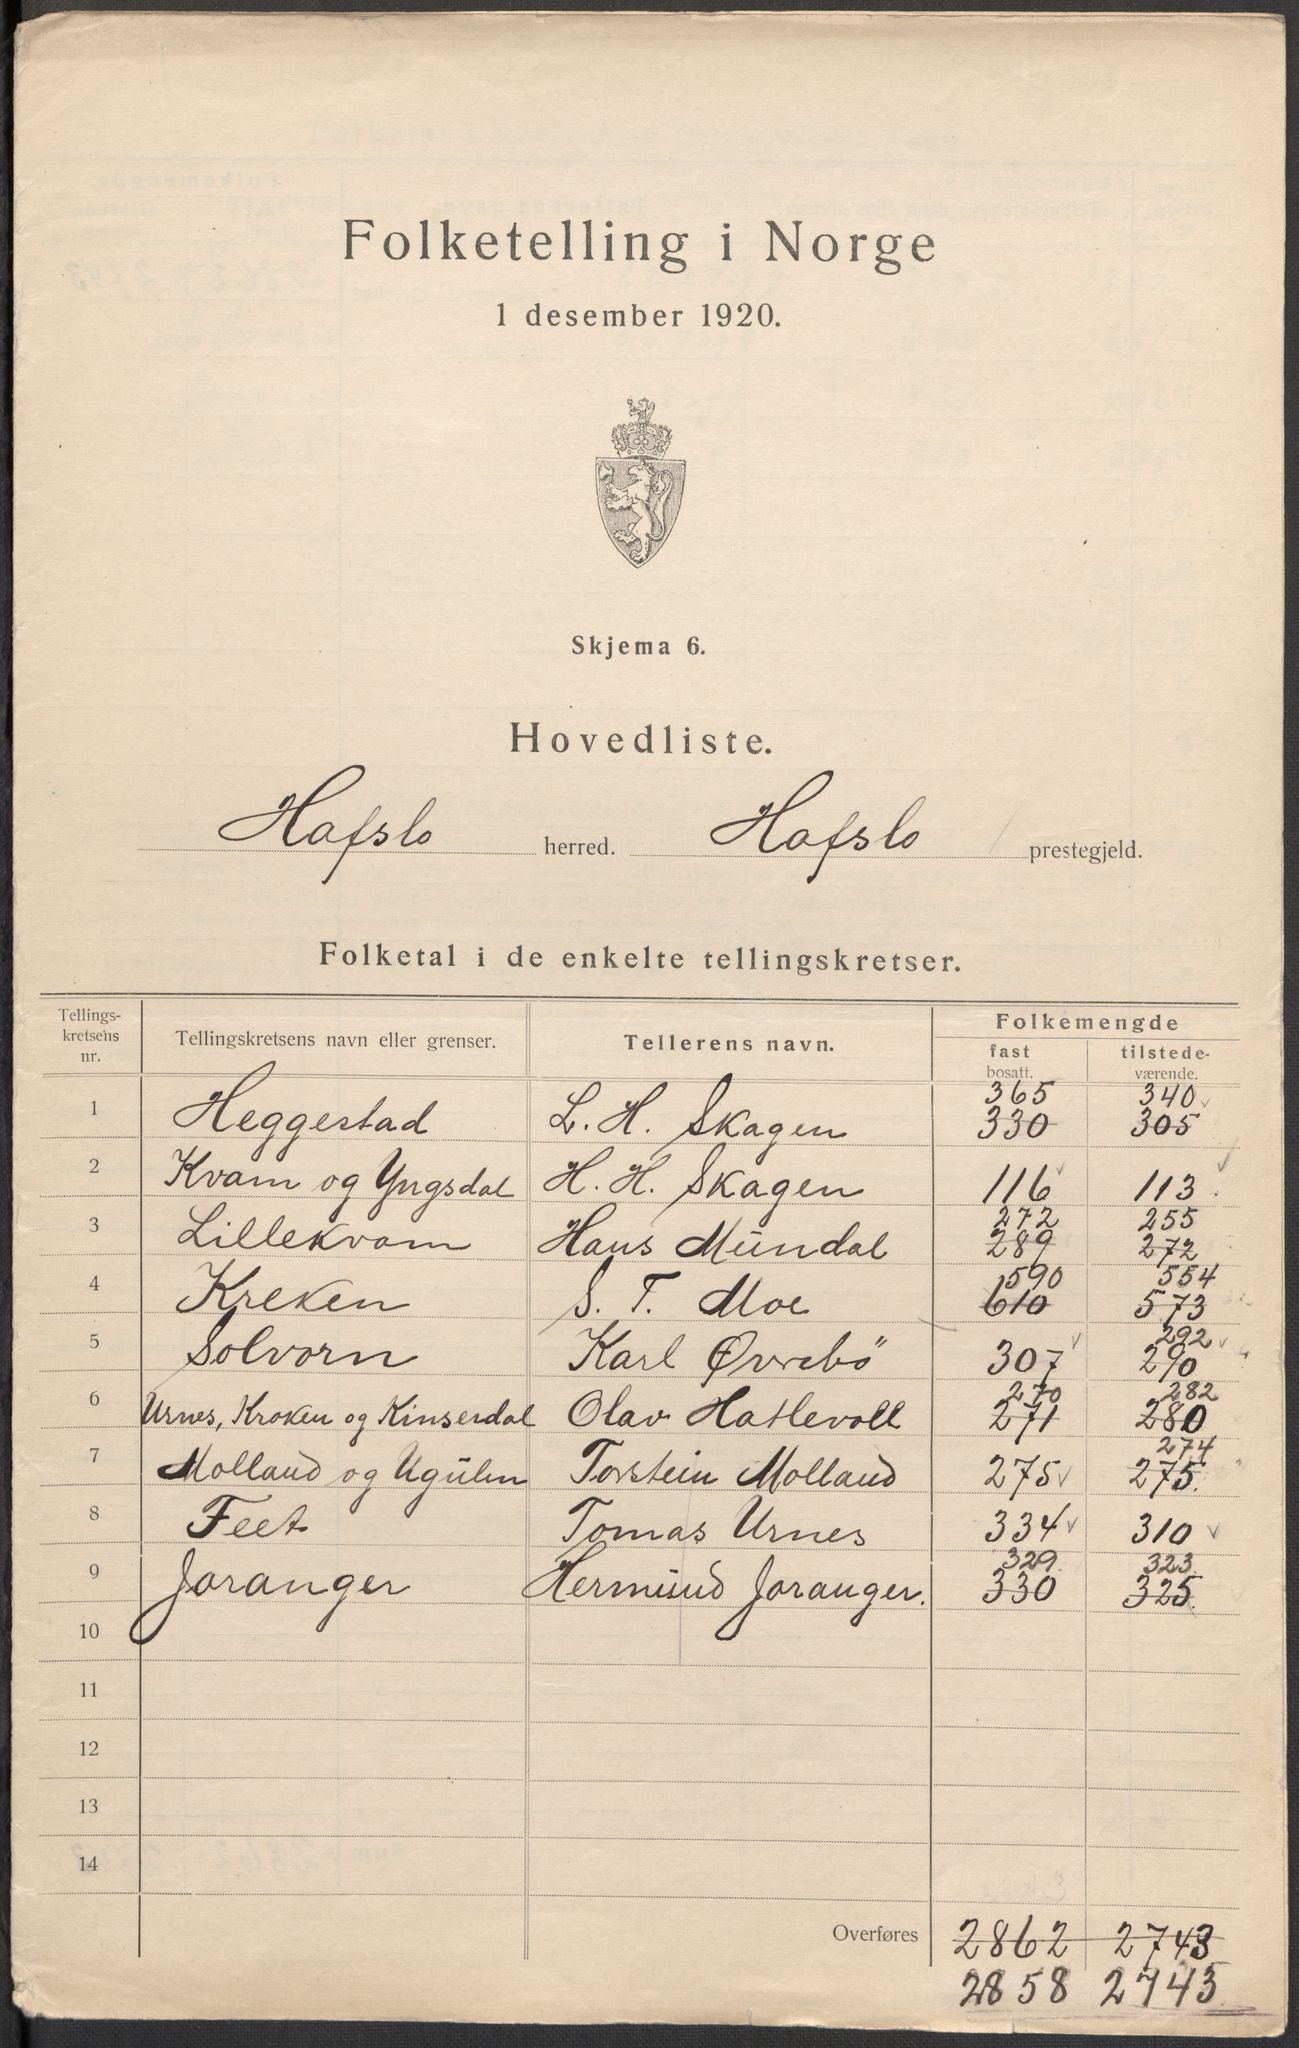 Folketelling i Norge
1 desember 1920.
Skjema 6.
Hovedliste.
Hafslo herred. Hafslo prestegjeld.
Folketal i de enkelte tellingskretser.
Tellings-
kretsens
nr.
Tellingskretsens navn eller grenser.
Tellerens navn.
Folkemengde
fast
bosatt.
tilstede-
værende.
365 340
1 Heggestad L. H. Skagen 330 305
2 Kvam og Yngsdal H. H. Skagen 116 113
272 255
3 Lillekvam Hans Mundal 289 272
590 554
4 Kreken S. T. Moe 610 573
292
5 Solvorn Karl Øvrebö 307 290
270 282
6 Urnes, Kroken og Kinserdal Olav Hatlevoll 271 280
274
7 Molland og Ugulen Torstein Molland 275 275
8 Feet Tomas Urnes 334 310
329 323
9 Joranger Hermund Joranger. 330 325
10
11
12
13
14
Overføres 2862 2743
2858 2743